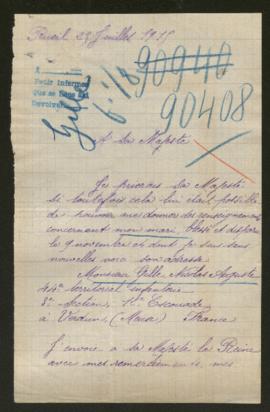 Treveil 23 Juillet 1915
A
Pedir informes
que se haga así
Devolver
Gille
6-1/8
90940
90408
A Sa Majesté
Je prierais Sa Majesté
si toutefois cela lui était possible
de pouvoir me donner des renseignements
concernant mon mari, blessé et disparu
le 9 novembre et dont je suis sans
nouvelles voici son adresse
Monsieur Gille Nicolas Auguste
44e territorial infanterie
8e section, 1re Escouade
à Verdun, (Meuse) France
J'envoie à sa Majesté la Reine
avec mes remerciements, mes